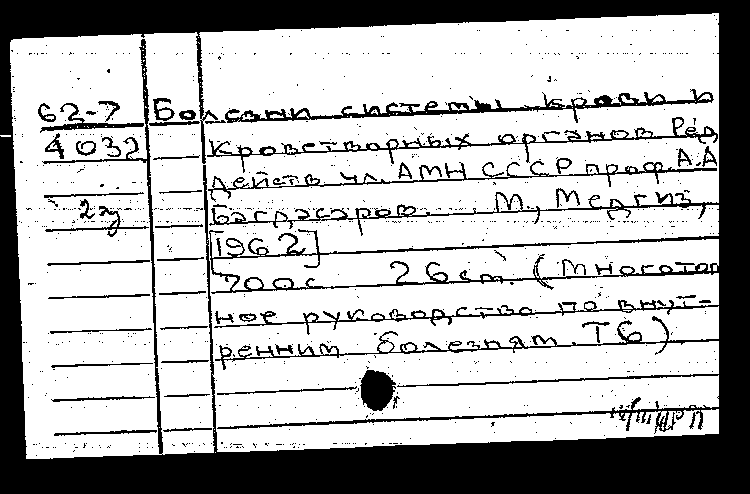 62-7 Болезни системы крови и
4032 Кроветворных органов Ред.
действ чл. АМН СССР проф. А.А
2 эу Багдасаров. М., Медгиз,
[1962]
700с 26cm. (Многотом
ное руководство по внут-
ренним болезням. Т6)